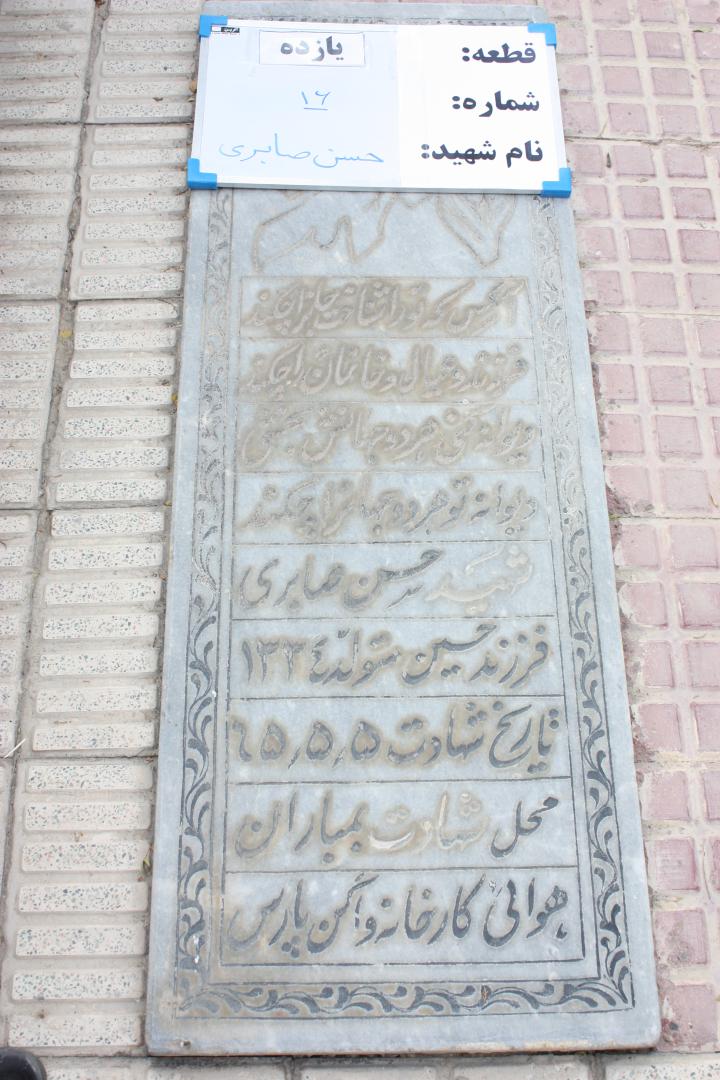 قطعه: یازده
شماره: ۱۶
نام شهید: حسن صابری
آنکس که تو را شناخت جانرا چکند
فرزند و عیال و خانمان را چکند
دیوانه کنی هر دو جهانش بخشی
دیوانه تو هر دو جهانرا چکند
شهید حسن صابری
فرزند حسین متولد ۱۳۳٤
تاریخ شهادت ۵ر۵ر٦۵
محل شهادت بمباران
هوائی کارخانه واگن پارس